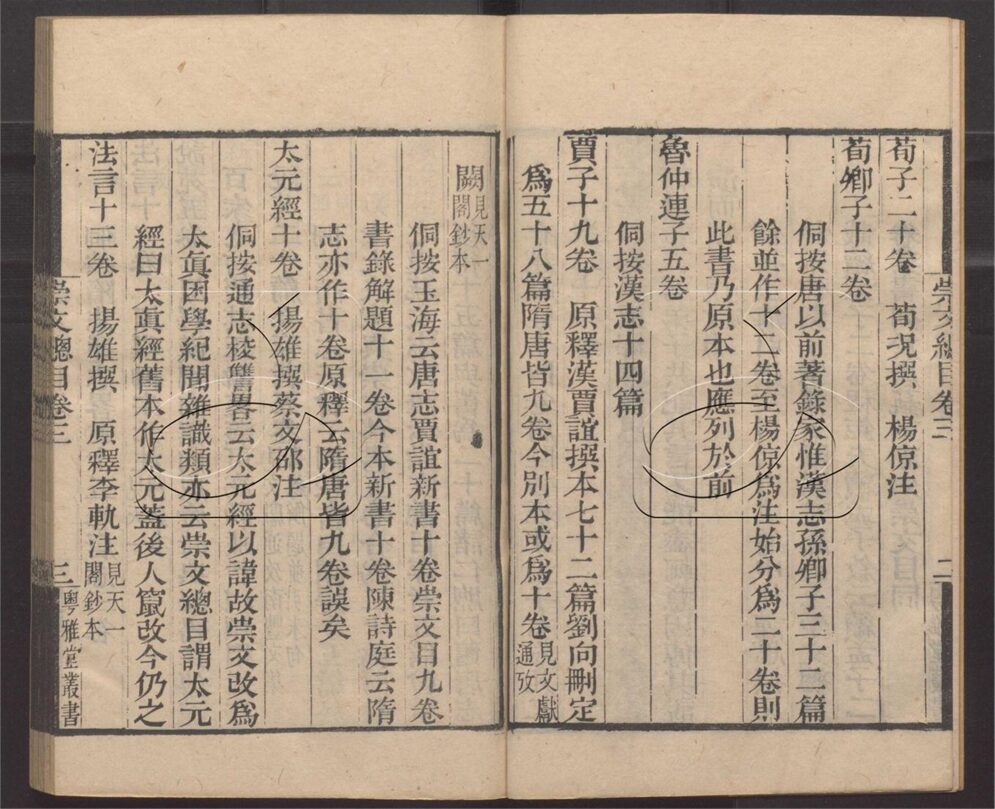 崇文總目卷三
二
荀子二十卷 荀況撰 楊倞注
荀卿子十二卷
侗按唐以前著錄家惟漢志孫卿子三十二篇
餘並作十二卷至楊倞爲注始分爲二十卷則
此書乃原本也應列於前
魯仲連子五卷
侗按漢志十四篇
賈子十九卷 原釋漢賈誼撰本七十二篇劉向刪定
爲五十八篇隋唐皆九卷今別本或爲十卷見文獻通攷
闕見天一閣鈔本
侗按玉海云唐志賈誼新書十卷崇文目九卷
書錄解題十一卷今本新書十卷陳詩庭云隋
志亦作十卷原釋云隋唐皆九卷誤矣
太元經十卷 揚雄撰蔡文邵注
侗按通志校讐畧云太元經以諱故崇文改爲
太眞困學紀聞雜識類亦云崇文總目謂太元
經曰太眞經舊本作太元蓋後人竄改今仍之
法言十三卷 揚雄撰 原釋李軌注見天一閣鈔本
崇文總目卷三
三
粵雅堂叢書